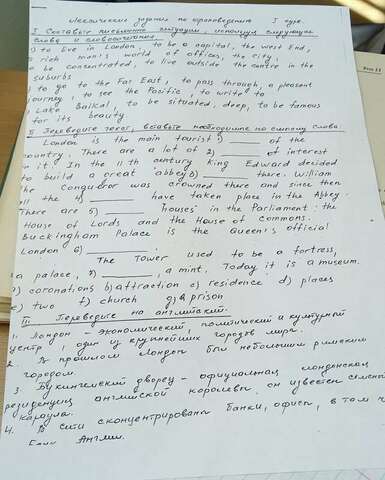 Лексические задания по страноведению I курс.
I. Составьте письменно ситуации, используя следующие
слова и словосочетания.
1) to live in London, to be a capital, the West End,
a rich man's world of offices, the city,
concentrated, to live outside the centre in the
suburbs
2) to go to the Far East, to pass through, a pleasant
journey, to see the Pacific, to write to
Lake Baikal, to be situated, deep, to be famous
for its beauty
II. Переведите текст, вставьте необходимые по смыслу слова.
London is the main tourist 1) ______ of the
country. There are a lot of 2) ______ of interest
in it. In the 11th century King Edward decided
to build a great abbey 3) ______ there. William
the Conqueror was crowned there and since then
all the 4) ______ have taken place in the Abbey.
There are 5) ______ houses in the Parliament: the
House of Lords and the House of Commons.
Buckingham Palace is the Queen's official
London 6) ______.
The Tower used to be a fortress,
a palace, 7) ______, a mint. Today it is a museum.
a) coronations b) attraction c) residence d) places
e) two f) church g) a prison
III. Переведите на английский.
1. Лондон - экономический, политический и культурный
центр, один из крупнейших городов мира.
2. В прошлом Лондон был небольшим римским
городом.
3. Букингемский дворец - официальная лондонская
резиденция английской королевы, он известен сменой
караула.
4. В Сити сконцентрированы банки, офисы, в том ч
Банк Англии.